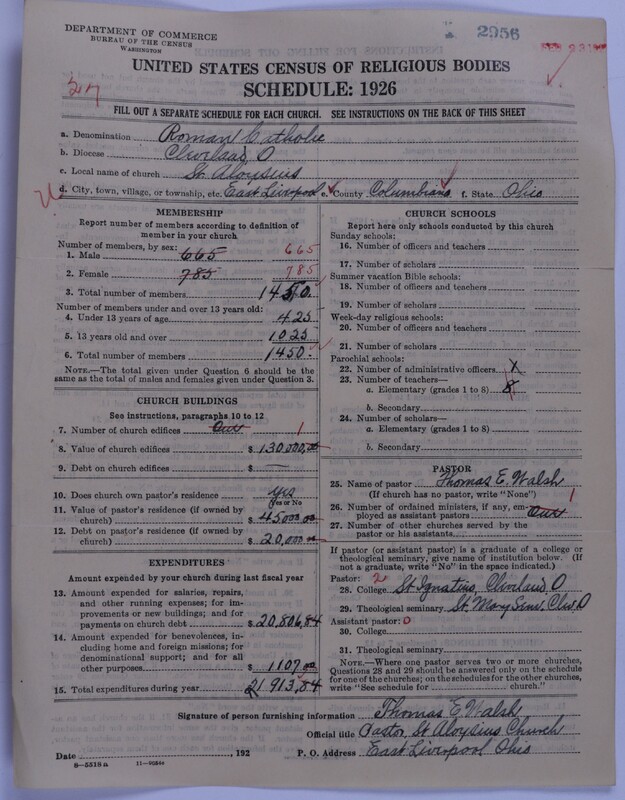 DEPARTMENT OF COMMERCE
BUREAU OF THE CENSUS
WASHINGTON
2956
UNITED STATES CENSUS OF RELIGIOUS BODIES
SCHEDULE: 1926
FILL OUT A SEPARATE SCHEDULE FOR EACH CHURCH. SEE INSTRUCTIONS ON THE BACK OF THIS SHEET
a. Denomination Roman Catholic
b. Diocese Cleveland O
c. Local name of church St. Aloysius
d. City, town, village, or township, etc. East Liverpool e. County Columbiana f. State Ohio
MEMBERSHIP
Report number of members according to definition of
member in your church
Number of members, by sex:
1. Male 665 665
2. Female 785 785
3. Total number of members 1450.
Number of members under and over 13 years old:
4. Under 13 years of age 425
5. 13 years old and over 1025
6. Total number of members 1450.
NOTE.—The total given under Question 6 should be
the same as the total of males and females given under Question 3.
CHURCH BUILDINGS
See instructions, paragraphs 10 to 12
7. Number of church edifices One 1
8. Value of church edifices $ 130,000,00
9. Debt on church edifices $ —
10. Does church own pastor's residence Yes
Yes or No
11. Value of pastor's residence (if owned by
church) $ 45,000.00
12. Debt on pastor's residence (if owned by
church) $ 20,000
EXPENDITURES
Amount expended by your church during last fiscal year
13. Amount expended for salaries, repairs,
and other running expenses; for im-
provements or new buildings; and for
payments on church debt $ 20,806,84
14. Amount expended for benevolences, in-
cluding home and foreign missions; for
denominational support; and for all
other purposes $ 1107,00
15. Total expenditures during year 21913,84
CHURCH SCHOOLS
Report here only schools conducted by this church
Sunday schools:
16. Number of officers and teachers
17. Number of scholars
Summer vacation Bible schools:
18. Number of officers and teachers
19. Number of scholars
Week-day religious schools:
20. Number of officers and teachers
21. Number of scholars
Parochial schools:
22. Number of administrative officers X
23. Number of teachers—
a. Elementary (grades 1 to 8) 8
b. Secondary
24. Number of scholars—
a. Elementary (grades 1 to 8)
b. Secondary
PASTOR
25. Name of pastor Thomas E. Walsh
(If church has no pastor, write "None")
26. Number of ordained ministers, if any, em-
ployed as assistant pastors One 1
27. Number of other churches served by the
pastor or his assistants
If pastor (or assistant pastor) is a graduate of a college or
theological seminary, give name of institution below. (If
not a graduate, write "No" in the space indicated.)
Pastor: 2
28. College St. Ignatius, Cleveland O
29. Theological seminary St. Mary Sem. Clev. O
Assistant pastor: 0
30. College
31. Theological seminary
NOTE.—Where one pastor serves two or more churches,
Questions 28 and 29 should be answered only on the schedule
for one of the churches; on the schedules for the other churches,
write "See schedule for church."
Signature of person furnishing information Thomas E Walsh
Official title Pastor, St Aloysius Church
Date , 192 P. O. Address East Liverpool Ohio
8-5518 a 11-9054a